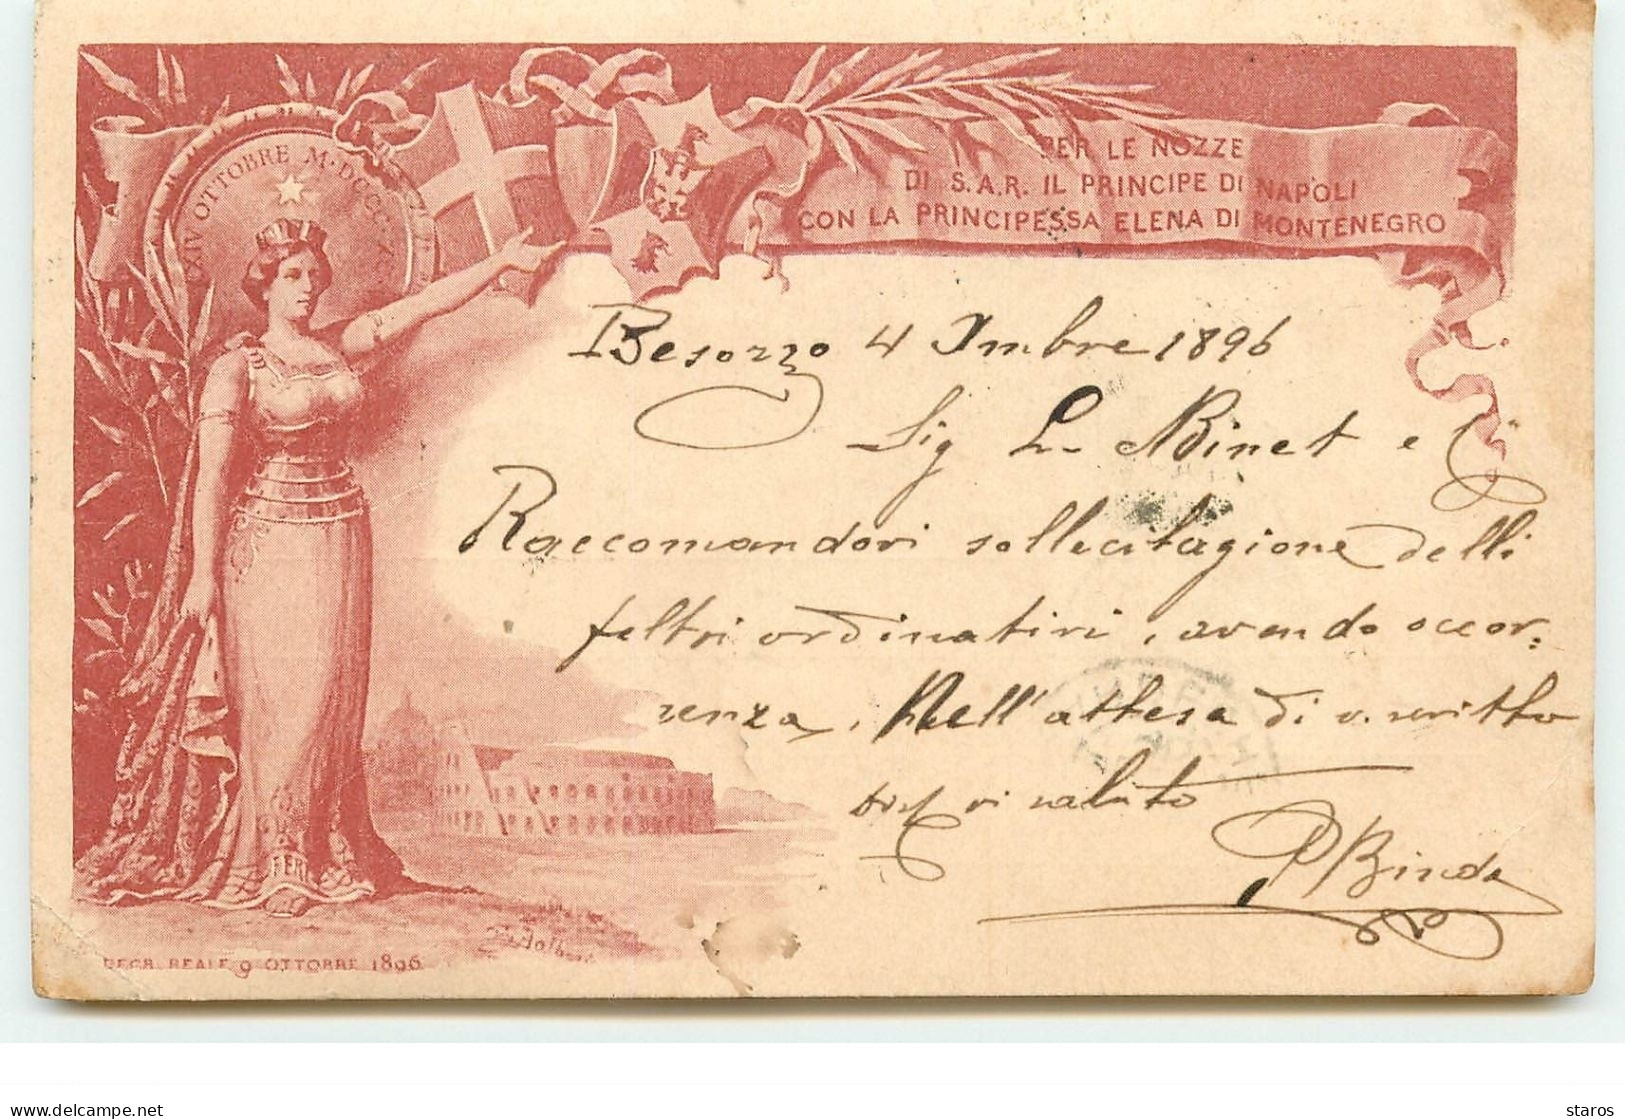 XXIV OTTOBRE M·DCCC·XC
PER LE NOZZE
DI S.A.R. IL PRINCIPE DI NAPOLI
CON LA PRINCIPESSA ELENA DI MONTENEGRO
Besozzo 4 Xmbre 1896
Sig L. Binet e C
Raccomandovi sollecitazione delli
feltri ordinativi, avendo occor:
renza. Nell'attesa di v. scritto
vi saluto
P Binda
FERT
DECR. REALE 9 OTTOBRE 1896
delcampe.net
staros